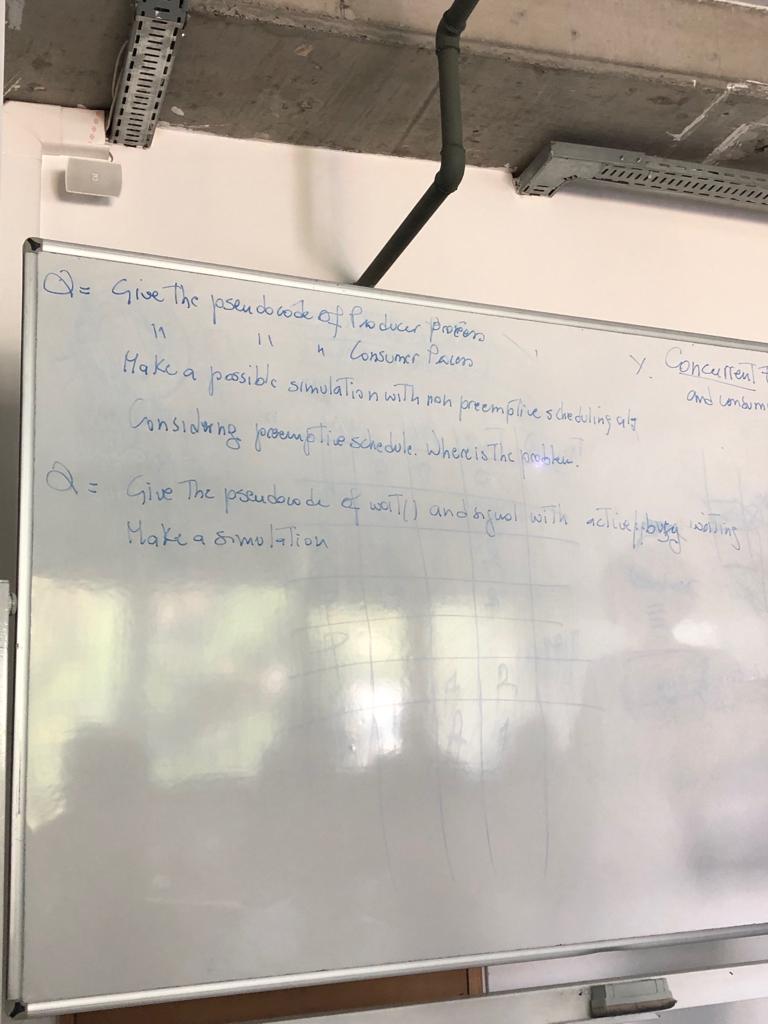 Q= Give The pseudocode of Producer process
" " " Consumer Process
Make a possible simulation with non preemptive scheduling alg
Considering preemptive schedule. Where is The problem.
Q= Give The pseudocode of wait() and signal with active/busy waiting
Make a simulation
Y. Concurrent
and consum
2 2
2 1